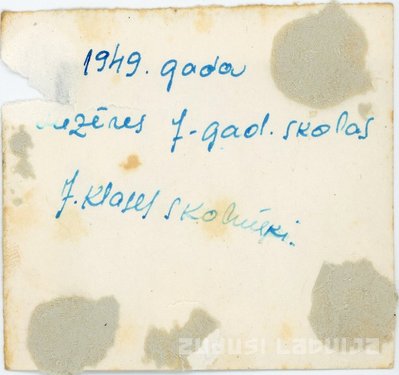 1949. gada
7-gad. skolas
7. klases skolnieki.
ZUDUSI LATVIJA